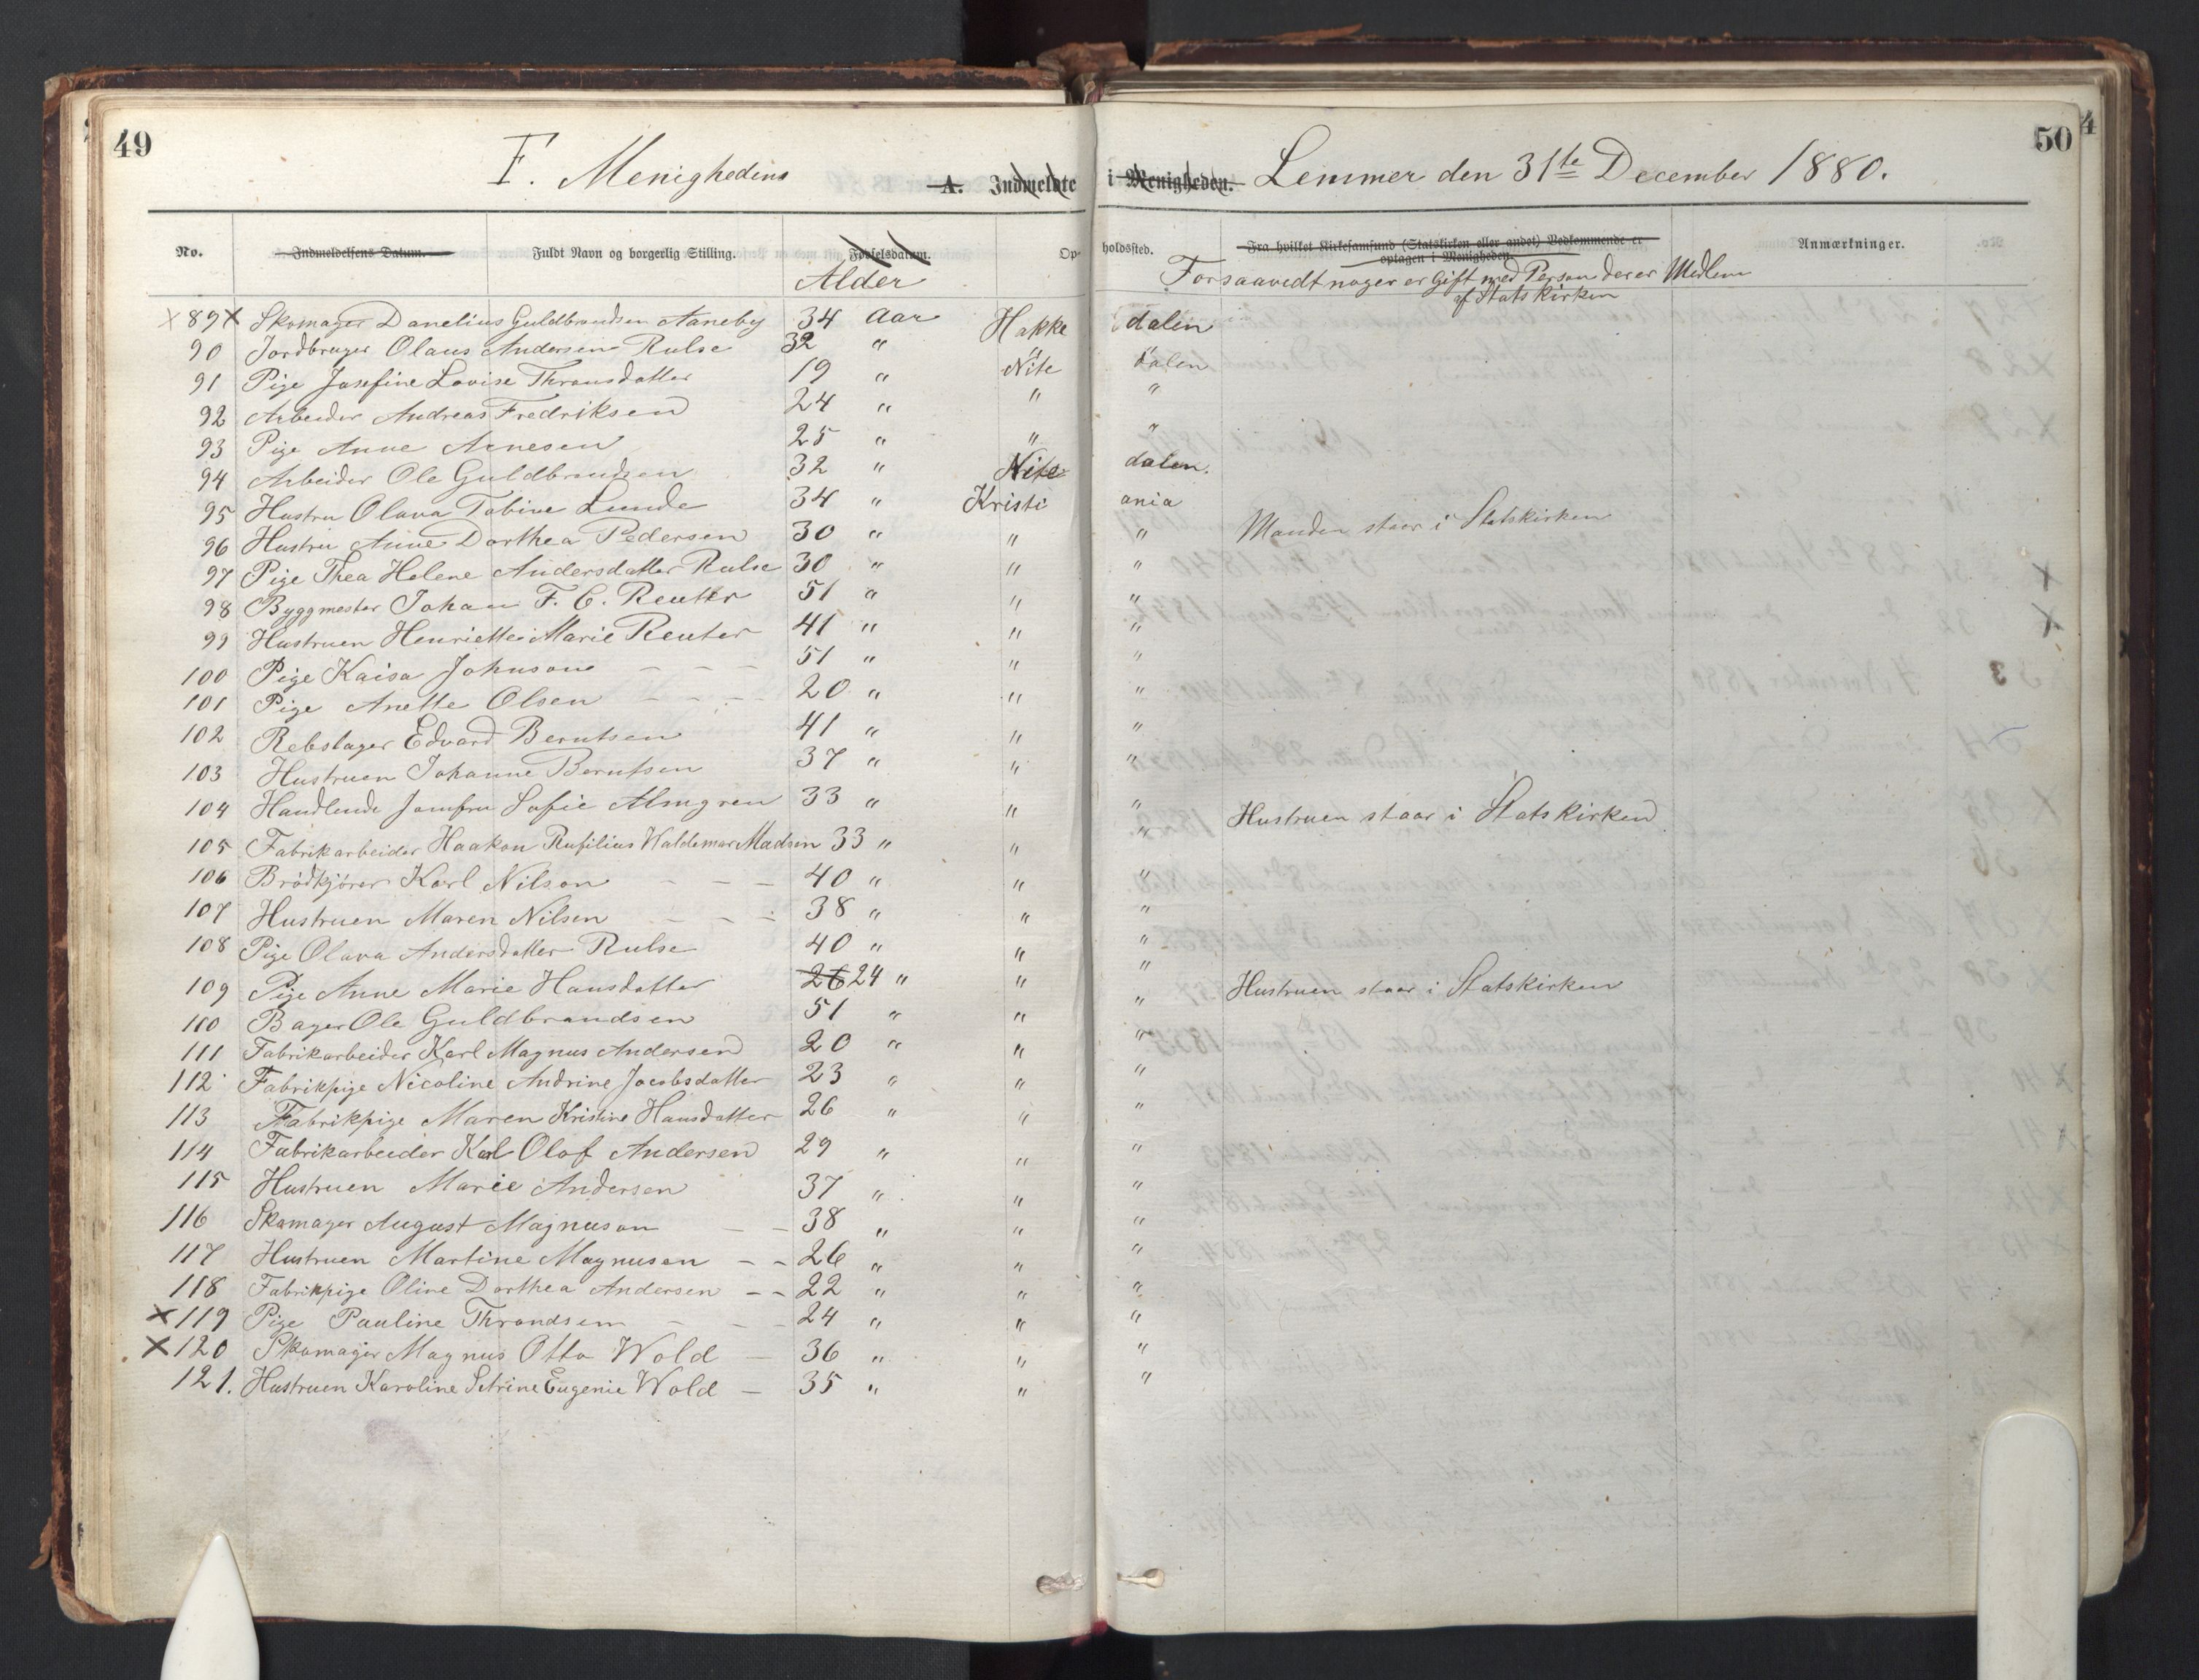 49
50
4
F. Menighedens A. Indmeldte i Menigheden. Lemmer den 31te December 1880.
No. Indmeldelsens Datum. Fuldt Navn og borgerlig Stilling. Fødselsdatum. Alder Opholdssted. Fra hvilket Kirkesamfund (Statskirken eller andet) Vedkommende er optagen i Menigheden. Anmærkninger.
Forsaavedt nogen er Gift med Person der er Medlem
af Statskirken
X 89 X Skomager Danelius Guldbrandsen Aaneby 34 Aar Hakke dalen
90 Jordbruger Olaus Andersen Rulse 32 " " "
91 Pige Josefine Lovise Thronsdatter 19 " Nite dalen
92 Arbeider Andreas Fredriksen 24 " " "
93 Pige Anne Arnesen 25 " " "
94 Arbeider Ole Guldbrandsen 32 " Nite dalen.
95 Hustru Olava Tobine Lunde 34 " Kristi ania
96 Hustru Anne Dorthea Pedersen 30 " " " Manden staar i Statskirken
97 Pige Thea Helene Andersdatter Rulse 30 " " "
98 Byggmester Johan F. C. Reuter 51 " " "
99 Hustruen Henriette Marie Reuter 41 " " "
100 Pige Kaisa Johnson - - - 51 " " "
101 Pige Anette Olsen - - - 20 " " "
102 Rebslager Edvard Berntsen 41 " " "
103 Hustruen Johanne Berntsen 37 " " "
104 Handlende Jomfru Sofie Almgren 33 " " "
105 Fabrikarbeider Haakon Rufilius Waldemar Madsen 33 " " " Hustruen staar i Statskirken
106 Brødkjører Karl Nilson - - - 40 " " "
107 Hustruen Maren Nilsen - - - 38 " " "
108 Pige Olava Andersdatter Rulse 40 " " "
109 Pige Anne Marie Hansdatter 26 24 " " "
110 Bager Ole Guldbrandsen 51 " " " Hustruen staar i Statskirken
111 Fabrikarbeider Karl Magnus Andersen 20 " " "
112 Fabrikpige Nicoline Andrine Jacobsdatter 23 " " "
113 Fabrikpige Maren Kristine Hansdatter 26 " " "
114 Fabrikarbeider Karl Olof Andersen 29 " " "
115 Hustruen Marie Andersen 37 " " "
116 Skomager August Magnuson - - 38 " " "
117 Hustruen Martine Magnusen - - 26 " " "
118 Fabrikpige Oline Dorthea Andersen - - 22 " " "
X 119 Pige Pauline Throndsen - - - 24 " " "
X 120 Skomager Magnus Otto Wold - 36 " " "
121. Hustruen Karoline Petrine Eugenie Wold - 35 " " "